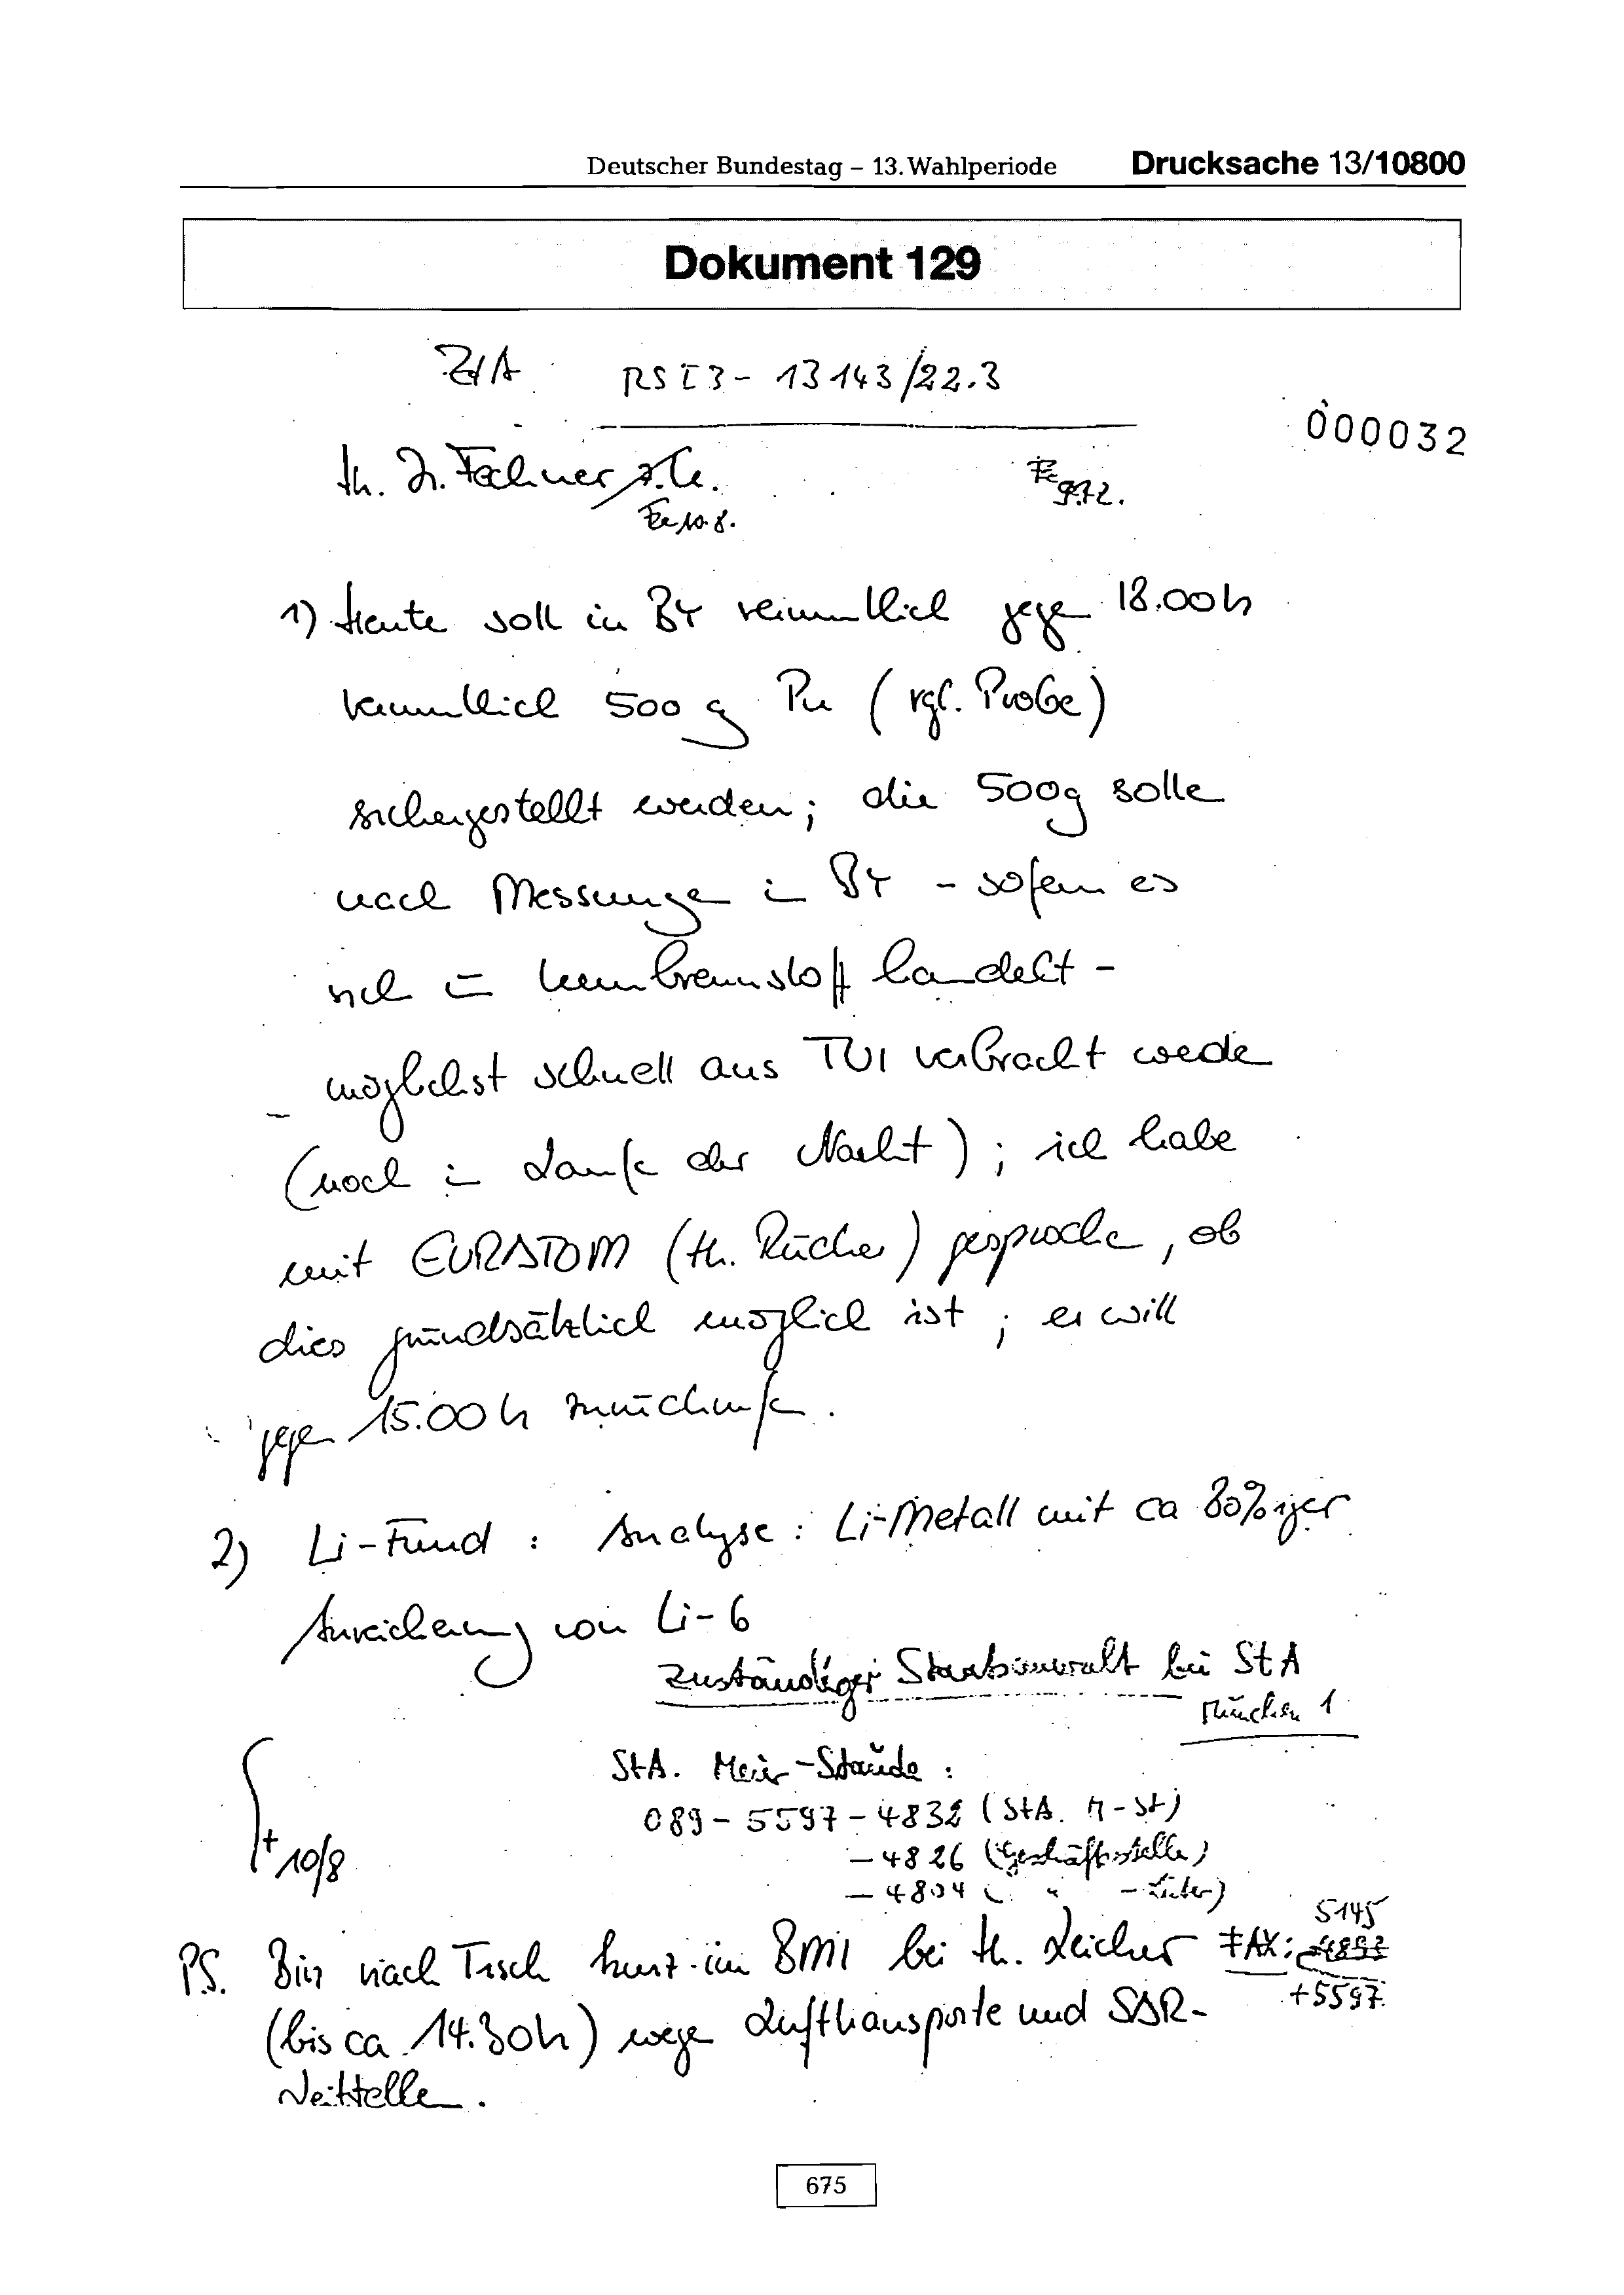 Deutscher Bundestag – 13. Wahlperiode Drucksache 13/10800
Dokument 129
ZdA RS I 3 - 13143/22.3
000032
H. Dr. Fechner
Fe 10.8.
1) Heute soll in BY vermutlich gegen 18.00 h
vermutlich 500 g Pu (vgl. Probe)
sichergestellt werden; die 500g solle
nach Messunge in BY - sofern es
sich um Kernbrennstoff handelt -
möglichst schnell aus TUI verbracht werde
(noch im Laufe der Nacht); ich habe
mit EURATOM (H. ) gesproche, ob
dies grundsätzlich möglich ist; er will
gegen 15.00 h zurückrufe.
2) Li-Fund : Analyse: Li-Metall mit ca 80%iger
Anreicherung von Li-6
zuständiger Staatsanwalt bei StA
München 1
StA. Meier-Staude :
089 - 5597 - 4832 (StA. M-St)
- 4826 (Geschäftsstelle)
- 4804 ( "
10/8
5145
PS. Bin nach Tisch kurz im BMI bei H. FAX: 4893
+5597
(bis ca. 14.30h) wege Lufttransporte und SSR-
675